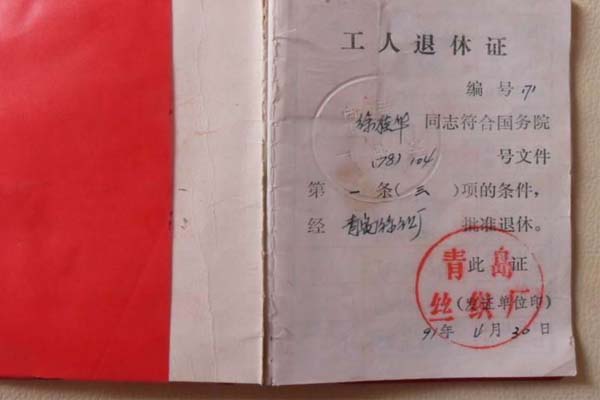 工人退休证
编号 71
徐桂华 同志符合国务院
(78) 104 号文件
第 一 条(三)项的条件,
经 青岛丝织厂 批准退休。
此证
青岛
丝织厂
(发证单位印)
91年 4月 30日